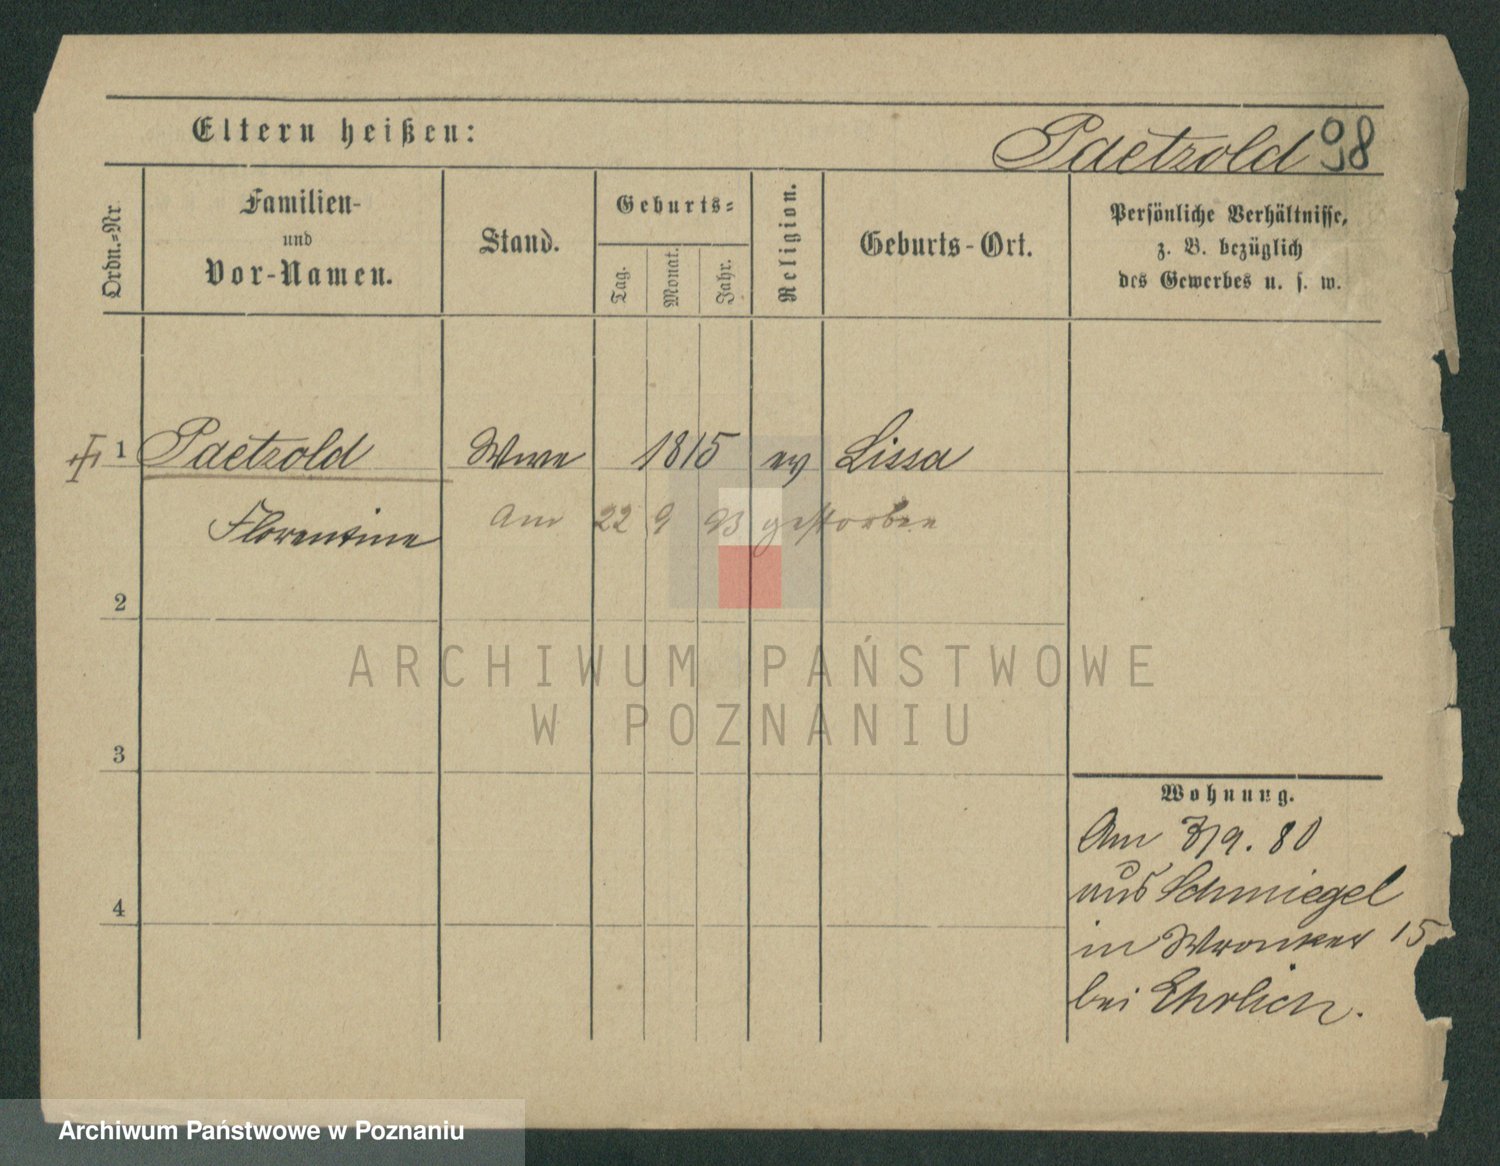 Eltern heißen:
Paetzold 98
Ordn.-Nr.
Familien-
und
Vor-Namen.
Stand.
Geburts-
Tag.
Monat.
Jahr.
Religion.
Geburts-Ort.
Persönliche Verhältnisse,
z. B. bezüglich
des Gewerbes u. s. w.
1 Paetzold Wwe 1815 ev Lissa
Florentine Am 22 9 93 gestorben
2
3
4
Wohnung.
Am 7/9. 80
aus Schmiegel
in Wronker 15
bei Ehrlich.
ARCHIWUM PAŃSTWOWE
W POZNANIU
Archiwum Państwowe w Poznaniu